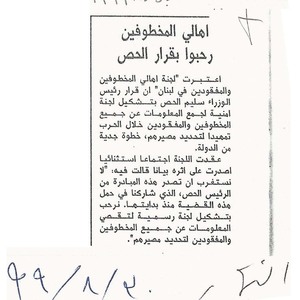 اهالي المخطوفين
رحبوا بقرار الحص
اعتبرت "لجنة اهالي المخطوفين
والمفقودين في لبنان" ان قرار رئيس
الوزراء سليم الحص بتشكيل لجنة
امنية لجمع المعلومات عن جميع
المخطوفين والمفقودين خلال الحرب
تمهيدا لتحديد مصيرهم، خطوة جدية
من الدولة.
عقدت اللجنة اجتماعا استثنائيا
اصدرت على اثره بيانا قالت فيه: "لا
نستغرب ان تصدر هذه المبادرة من
الرئيس الحص، الذي شاركنا في حمل
هذه القضية منذ بدايتها. نرحب
بتشكيل لجنة رسمية لتقصي
المعلومات عن جميع المخطوفين
والمفقودين لتحديد مصيرهم".
٩٩/٨/٢٠